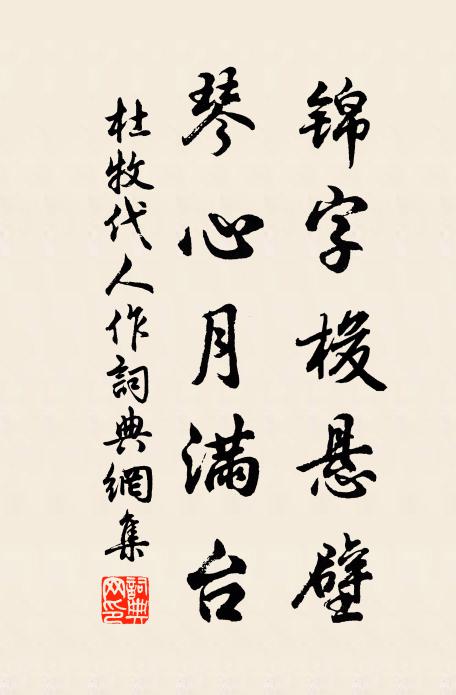 锦字梭悬壁
琴心月满台
杜牧代人作詞典網集
詞典网印